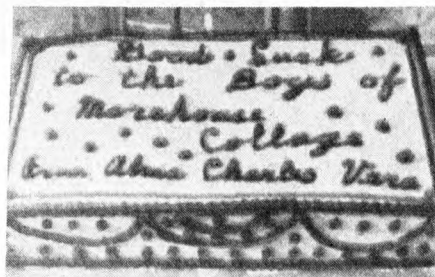 Good Luck
to the Boys of
Morehouse
College
Alma Charles Vera